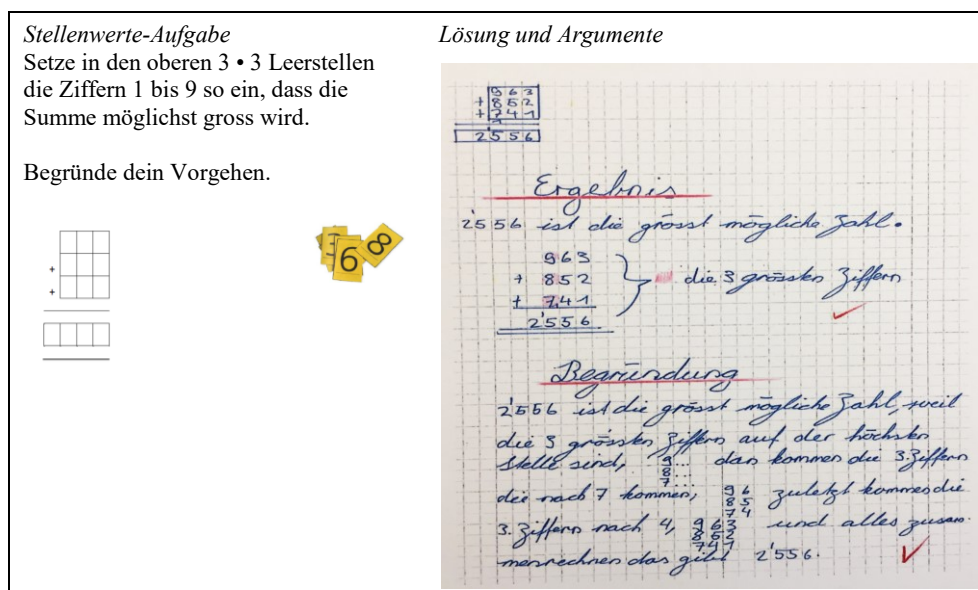 Stellenwerte-Aufgabe
Setze in den oberen 3 • 3 Leerstellen
die Ziffern 1 bis 9 so ein, dass die
Summe möglichst gross wird.
Begründe dein Vorgehen.
+
+
3 6 8
Lösung und Argumente
9 6 3
+ 8 5 2
+ 7 4 1
1
2'5 5 6
Ergebnis
2'556 ist die grösst mögliche Zahl.
963
+ 852 die 3 grössten Ziffern
+ 741
2'556
Begründung
2'556 ist die grösst mögliche Zahl, weil
die 3 grössten Ziffern auf der höchsten
stelle sind, 9.. 8.. 7.. dan kommen die 3.Ziffern
die nach 7 kommen, 96 85 74 zuletzt kommen die
3. Ziffern nach 4, 963 852 741 und alles zusam-
menrechnen das gibt 2'556.